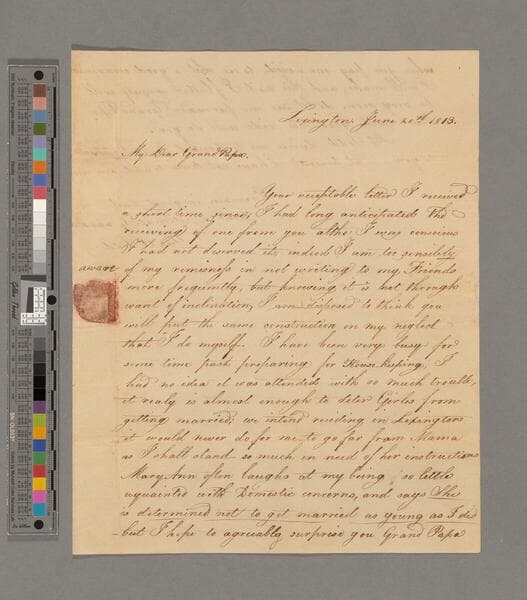 Lexington June 20th 1813.
My Dear Grand Papa.
Your acceptable letter I received
a short time since, I had long anticipated the
receiving of one from you altho I was conscious
I had not deserved it, indeed I am too sensibly
aware
of my remissness in not writing to my Friends
more frequently, but knowing it is not through
want of inclination, I am disposed to think you
will put the same construction on my neglect
that I do myself. I have been very busy for
some time past preparing for House keeping, I
had no idea it was attended with so much trouble,
it realy is almost enough to deter Girls from
getting married; we intend residing in Lexington
it would never do for me to go far from Mama
as I shall stand so much in need of her instructions
Mary Ann often laughs at my being so little
aquainted with Domestic concerns, and says She
is determined not to get married as young as I did
- but I hope to agreeably surprise you Grand Papa